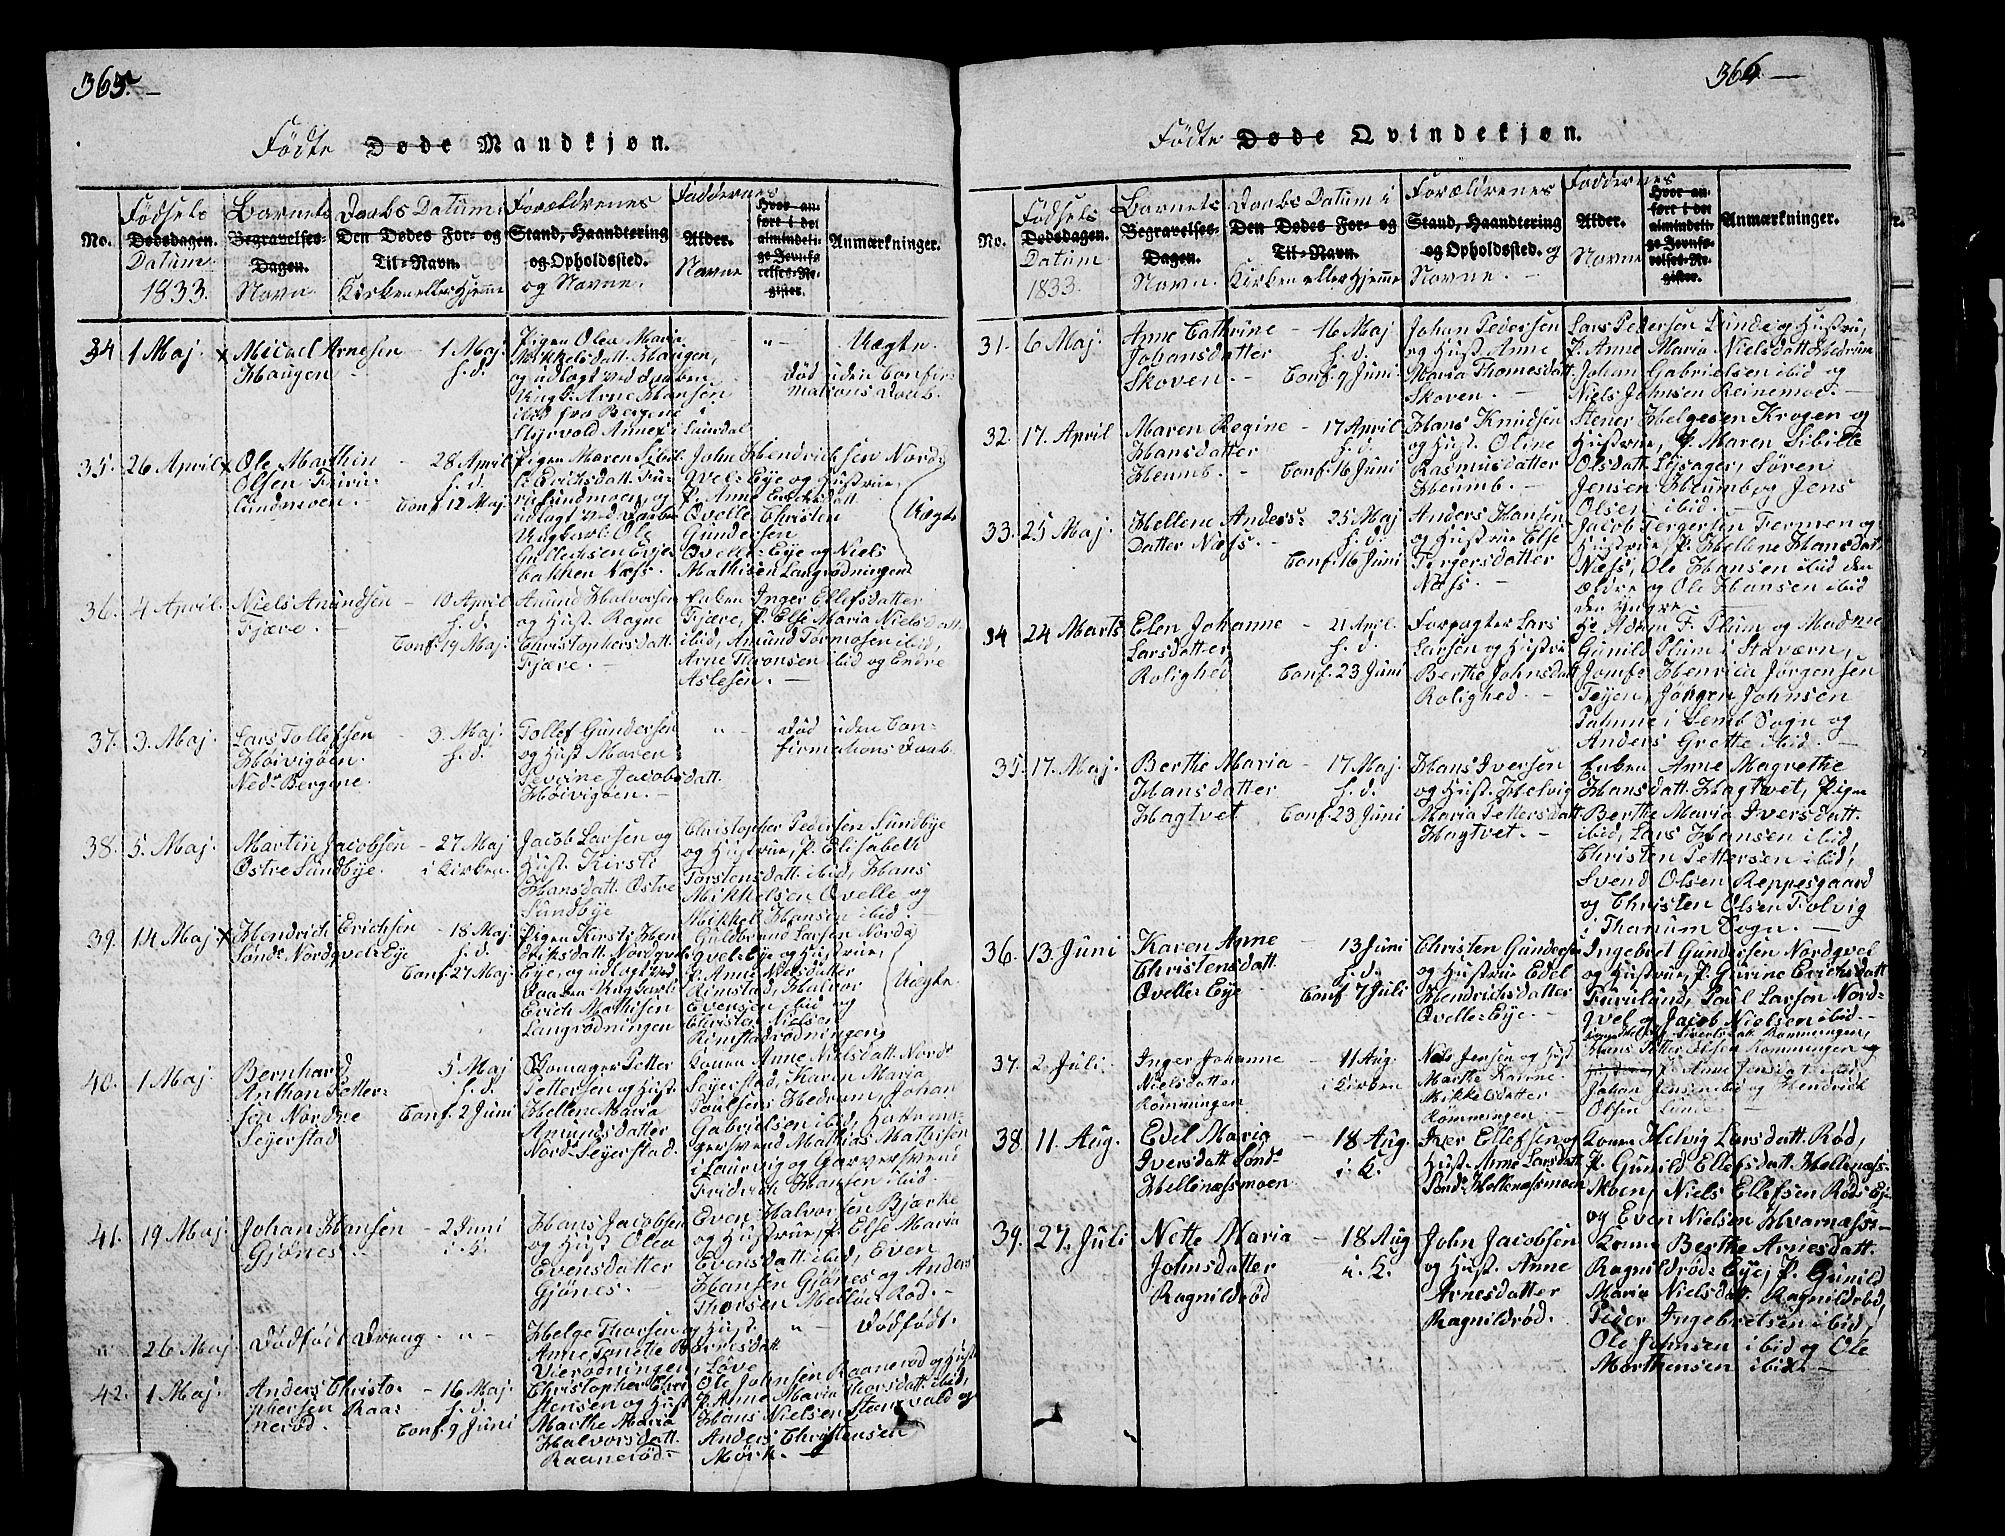 365. —
Fødte Døde Mandkjøn.
No.
Fødsels
Dødsdagen.
Datum
1833.
Barnets
Begravelses-
Dagen.
Navn.
Daabs Datum i
Den Dødes For- og
Til-Navn.
Kirken eller Hjemme
Forældrenes
Stand, Haandtering
og Opholdssted.
og Navne.
Faddernes
Alder.
Navne
Hvor an-
ført i det
almindeli-
ge Jevnfø-
relses-Re-
gister.
Anmærkninger.
34 1 Maj. x Micael Arnesen
Haugen
1 Maj.
h. d.
Pigen Olea Maria
Mikkelsdatt. Haugen,
og udlagt ved Daaben
Ungk. Arne Hansen
ibid fra Bergene i
Styrvold Annex i Laurdal
- " -
Uægte.
Død uden Confir-
mations Daab.
35. 26 April x Ole Marthin
Olsen Furu-
lundmoen. —
28 April
h. d.
Conf. 12 Maj.
Pigen Maren Sibil-
le Erichsdatt. Fu-
rulundmoen, og
udlagt ved Daaben
Ungkarl: Ole
Gullichsen Eeje-
bakken Næss.
John Hendrichsen Nordq
qvel-Eye og Hustrue,
P. Anne Erichsdatt.
Qvelle Christen
Gundersen
Qvelle-Eye og Niels
Mathisen Langrødningen
Uægte
36. 4 April. Niels Amundsen
Fjære. —
10 April
h. d.
Conf. 19 Maj.
Amund Halvorsen
og Hust. Ragne
Christophersdatt.
Fjære. —
Enken Inger Ellefsdatter
Fjære, P. Else Maria Nielsdatt.
ibid, Amund Tormosen ibid,
Arne Thronsen ibid og Endre
Aslesen. —
37. 3. Maj. Lars Tollefsen
Høivigøen
Ned. Bergene.
3. Maj.
h. d.
Tollef Gundersen
og Hust Maren
Severine Jacobsdatt.
Høivigøen. —
" -
Død uden Con-
firmations Daab.
38. 5. Maj. Martin Jacobsen
Østre Sundbye.
27 Maj
i Kirken.
Jacob Larsen og
Hust. Kirsti
Hansdatt. Østre
Sundbye
Christopher Pedersen Sundbye
og Hustrue, P. Elisabeth
Torstensdatt. ibid, Hans
Mikkelsen Qvelle og
Mikkel Hansen ibid. —
39. 14 Maj x Hendrich Erichsen
Sønd. Nordqvel-Eye
18 Maj.
h. d.
Conf. 27 Maj.
Pigen Kirsti Hen-
driksdatt. Nordqvel-
Eye, og udlagt ved
Daaben Ungkarl
Erich Mathisen
Langrødningen
Guldbrand Larsen Nordq
qvel-Eye og Hustrue,
P. Anne Nielsdatter
Rimstad, Halvor
Evensen ibid og
Christen Nielsen
Rimstadrødningen,
Uægte.
40. 1 Maj Bernhard
Anthon Petter-
sen Nordre
Seyerstad
5 Maj
h. d.
Conf. 2 Juni
Skomager Petter
Pettersen og Hust.
Hellene Maria
Amundsdatter
Nord. Seyerstad.
Konen Anne Nielsdatt. Nord.
Seyerstad, Karen Maria
Poulsens Hedrum, Johan
Gabrielsen ibid,
Mathias Mathisen
i Laurvig og Garversvend
Fridrich Hansen ibid.
41. 19 Maj. Johan Hansen
Gjønes —
2 Juni
i. K.
Hans Jacobsen
og Hust. Olea
Evensdatter
Gjønes. —
Even Halvorsen Bjerke
og Hustrue, P. Else Maria
Evensdatt. ibid, Even
Hansen Gjønes og Anders
Thorsen Melløe Rød. —
26 Maj. Dødfødt Dreng - " -
Helge Thorsen og Hust.
Anne Tonette Børresdatt
Vierødningen i Løve
" -
Dødfødt.
42. 1 Maj. Anders Christo-
phersen Raa-
nerød. —
16 Maj.
h. d.
Conf. 9 Juni
Christopher Chri-
stensen og Hust
Marthe Maria
Halvorsdatt.
Raanerød. —
Ole Johnsen Raanerød og Hust
P. Anne Maria Thorsdatt. ibid,
Hans Nielsen Steensvald og
Anders Christensen
Mørk. —
366. —
Fødte Døde Qvindekjøn.
No.
Fødsels
Dødsdagen.
Datum
1833.
Barnets
Begravelses-
Dagen.
Navn.
Daabs Datum i
Den Dødes For- og
Til-Navn.
Kirken eller Hjemme
Forældrenes
Stand, Haandtering
og Opholdssted. og
Navne. —
Faddernes
Alder.
Navne
Hvor an-
ført i det
almindeli-
ge Jevnfø-
relses-Re-
gister.
Anmærkninger.
31. 6 Maj. Anne Cathrine
Johansdatter
Skoven. —
16 Maj
h. d.
Conf. 9 Juni
Johan Pedersen
og Hust Anne
Maria Thomesdatt.
Skoven. —
Lars Pedersen Lunde og Hustru,
P. Anne Maria Nielsdatt. Hedrum
Johan Gabrielsen ibid og
Niels Johnsen Reinemoe. —
32. 17. April Maren Regine
Hansdatter
Heumb. —
17 April
h. d.
Conf. 16 Juni
Hans Knudsen
og Hust. Oline
Rasmusdatter
Heumb. —
Stener Helgesen Krogen og
Hustrue, P. Maren Sibille
Olsdatt. Lysager, Søren
Jensen Heumb og Jens
Olsen ibid. —
33. 25 Maj. Hellene Anders-
Datter Næss. —
25 Maj
h. d.
Conf. 16 Juni
Anders Hansen
og Hustrue Else
Tergersdatter
Næss.
Jacob Tergersen Fermen og
Hustrue, P. Hellene Hansdatt.
Næss, Ole Hansen ibid den
ældre og Ole Hansen ibid
den yngre. —
34 24 Marts Elen Johanne
Larsdatter
Rolighed
21 April.
h. d.
Conf. 23 Juni
Forpagter Lars
Larsen og Hustru
Berthe Johnsdatt
Rolighed. —
Hr. Adam F. Plum og Madme
Gunild Plum i Staværn,
Jomfr. Henrica Jørgensen
Tejen, Jørgen Johnsen
Palmne i Semb Sogn og
Anders Grette ibid. —
35. 17. Maj. Berthe Maria
Hansdatter
Hagtvet
17 Maj.
h. d.
Conf. 23 Juni
Hans Iversen
og Hust. Helvig
Maria Pettersdatt.
Hagtvet. —
Enken Anne Magrethe
Hansdatt. Hagtvet, Pigen
Berthe Maria Iversdatt.
ibid, Lars Hansen ibid,
Christen Pettersen ibid,
Svend Olsen Reppesgaard
og Christen Olsen Folvig
i Thanum Sogn. —
36. 13 Juni Karen Anne
Christensdatt.
Qvelle-Eye
13 Juni
h. d.
Conf 7 Juli
Christen Gundersen
og Hustrue Edel
Hendrichsdatter
Qvelle-Eye. —
Ingebret Gundersen Nordqvel
og Hustrue, P. Gurine Erichsdatt
Furulund, Poul Larsen Nord-
qvel og Jacob Nielsen ibid. —
37. 2. Juli. Inger Johanne
Nielsdatter
Rømmingen.
11 Aug.
i Kirken
Niels Jensen og Hust
Marthe Karine
Mikkelsdatter
Rømmingen. —
Rømmingen,
Hans Petter Ibsen Rømmingen og
P. Anne Jensdatt. ibid,
Johan Jensen ibid og Hendrich
Olsen Lunde. —
38. 11. Aug. Edel Maria
Iversdatt. Sønd.
Hellenæssmoen
18 Aug.
i. K.
Iver Ellefsen og
Hust. Anne Larsdatt.
Sønd. Hellenæssmoen
Konen Helvig Larsdatt. Rød,
P. Gunild Ellefsdatt. Hellenæss-
moen, Niels Ellefsen Røds-Eje
og Even Nielsen Hvarnæss —
39. 27. Juli Nette Maria
Johnsdatter
Ragnildrød
18 Aug
i. K.
John Jacobsen
og Hust. Anne
Arnesdatter
Ragnildrød.
Konen Berthe Arnesdatt.
Ragnildrøds-Eye, P. Gunild
Maria Nielsdatt. Ragnildrød,
Peder Ingebretsen ibid,
Ole Johnsen ibid og Ole
Morthensen ibid. —